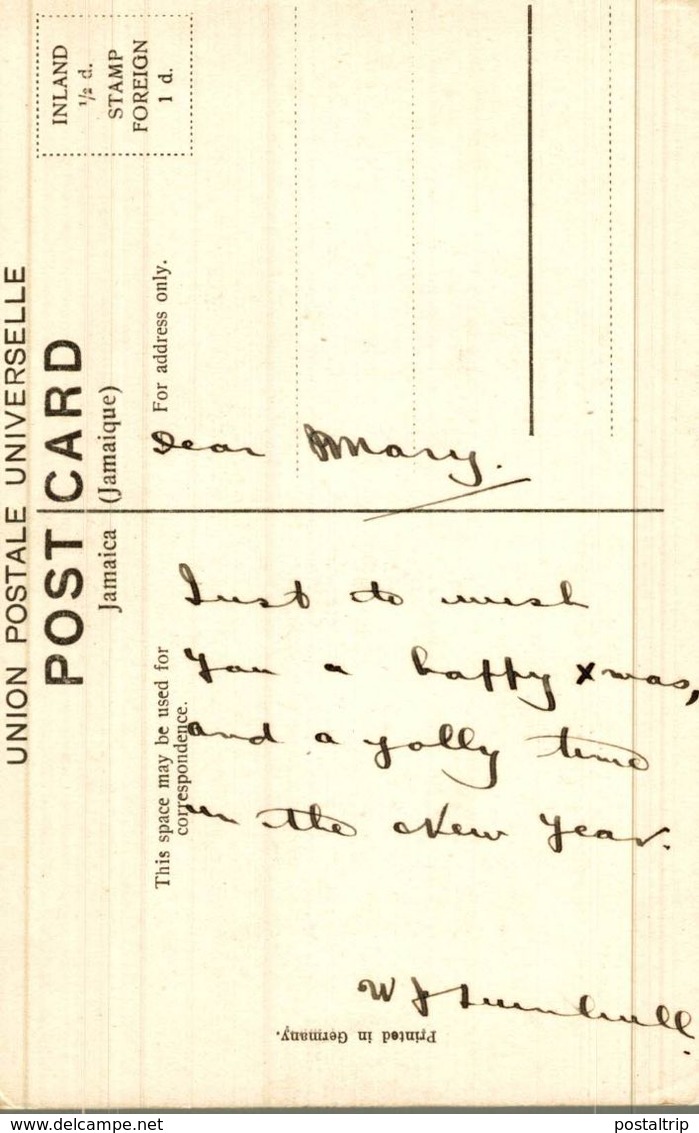 UNION POSTALE UNIVERSELLE
POST CARD
Jamaica (Jamaique)
INLAND
½ d.
STAMP
FOREIGN
1 d.
For address only.
This space may be used for
correspondence.
Dear Mary.
Just to wish
you a happy Xmas,
and a jolly time
in the New Year.
W J Turnbull.
Printed in Germany.
www.delcampe.net
postaltrip